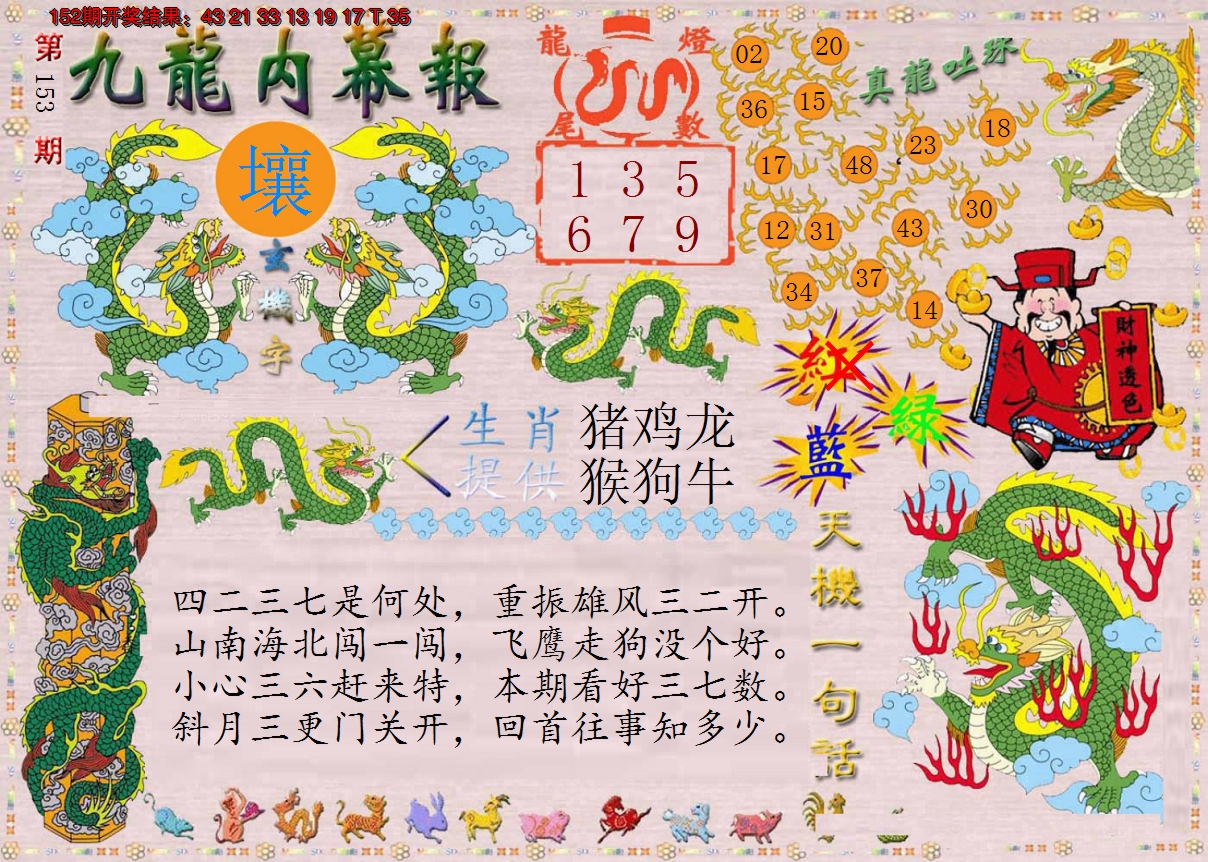 152期开奖结果：43 21 33 13 19 17 T 35
第153期
九龍内幕報
龍燈
尾數
1 3 5
6 7 9
真龍吐珠
02 20
36 15
17 48 23 18
12 31 43 30
34 37 14
壤
玄機字
紅
綠
藍
財神透色
生肖
提供
猪鸡龙
猴狗牛
天機一句话
四二三七是何处，重振雄风三二开。
山南海北闯一闯，飞鹰走狗没个好。
小心三六赶来特，本期看好三七数。
斜月三更门关开，回首往事知多少。